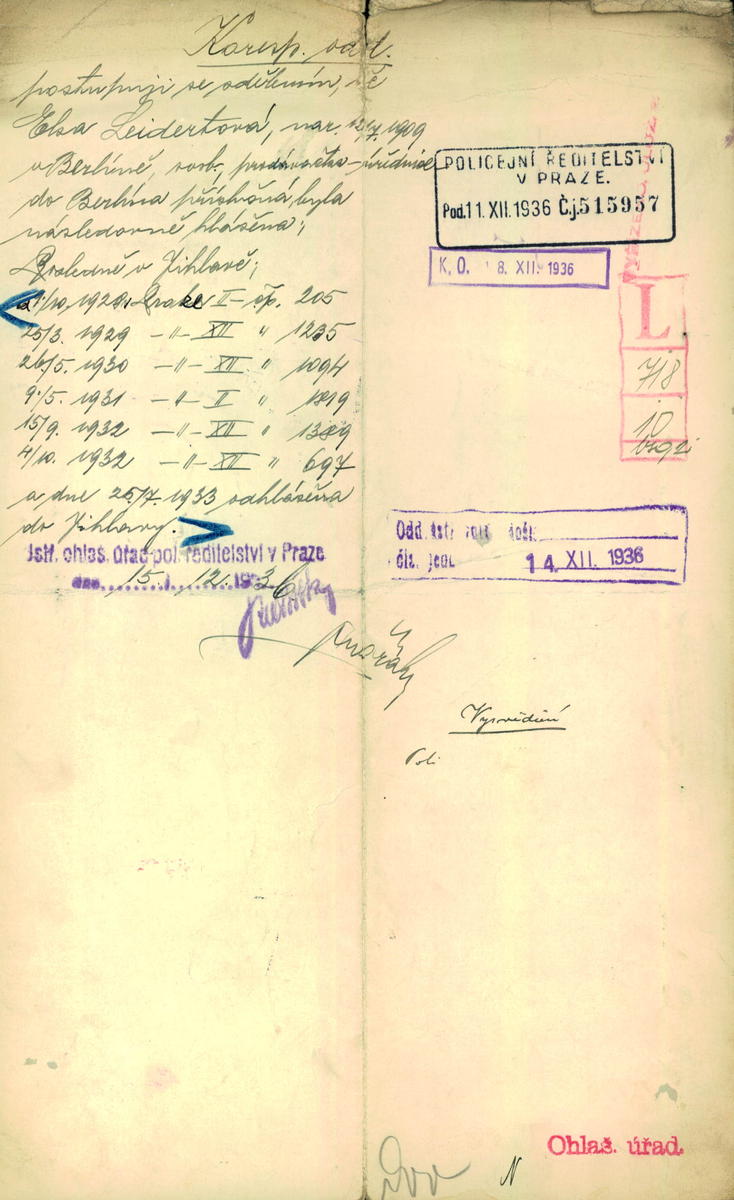 Koresp. odd.
postupuji se sdělením, že
Elsa Leidertová, nar. 12/7. 1909
v Berlíně, svob., prodavačka-úřednice
do Berlína příslušná, byla
následovně hlášena;
Posledně v Jihlavě;
1/10. 1928. Praha II-čp. 205
25/3. 1929 -"- XII " 1235
26/5. 1930 -"- XII " 1094
9./5. 1931 -"- II " 1819
15/9. 1932 -"- XII " 1389
4/10. 1932 -"- XII " 697
a dne 25/7. 1933 odhlášena
do Jihlavy.
Ústř. ohlaš. úřad pol. ředitelství v Praze
dne 15. 12. 1936
POLICEJNÍ ŘEDITELSTVÍ
V PRAZE.
Pod. 11. XII. 1936 Č.j. 515957
K. O. 8. XII. 1936
L
718
10
Odd.
čís. jedn. 14. XII. 1936
Vysvědčení
Poli
Ohlaš. úřad.
N